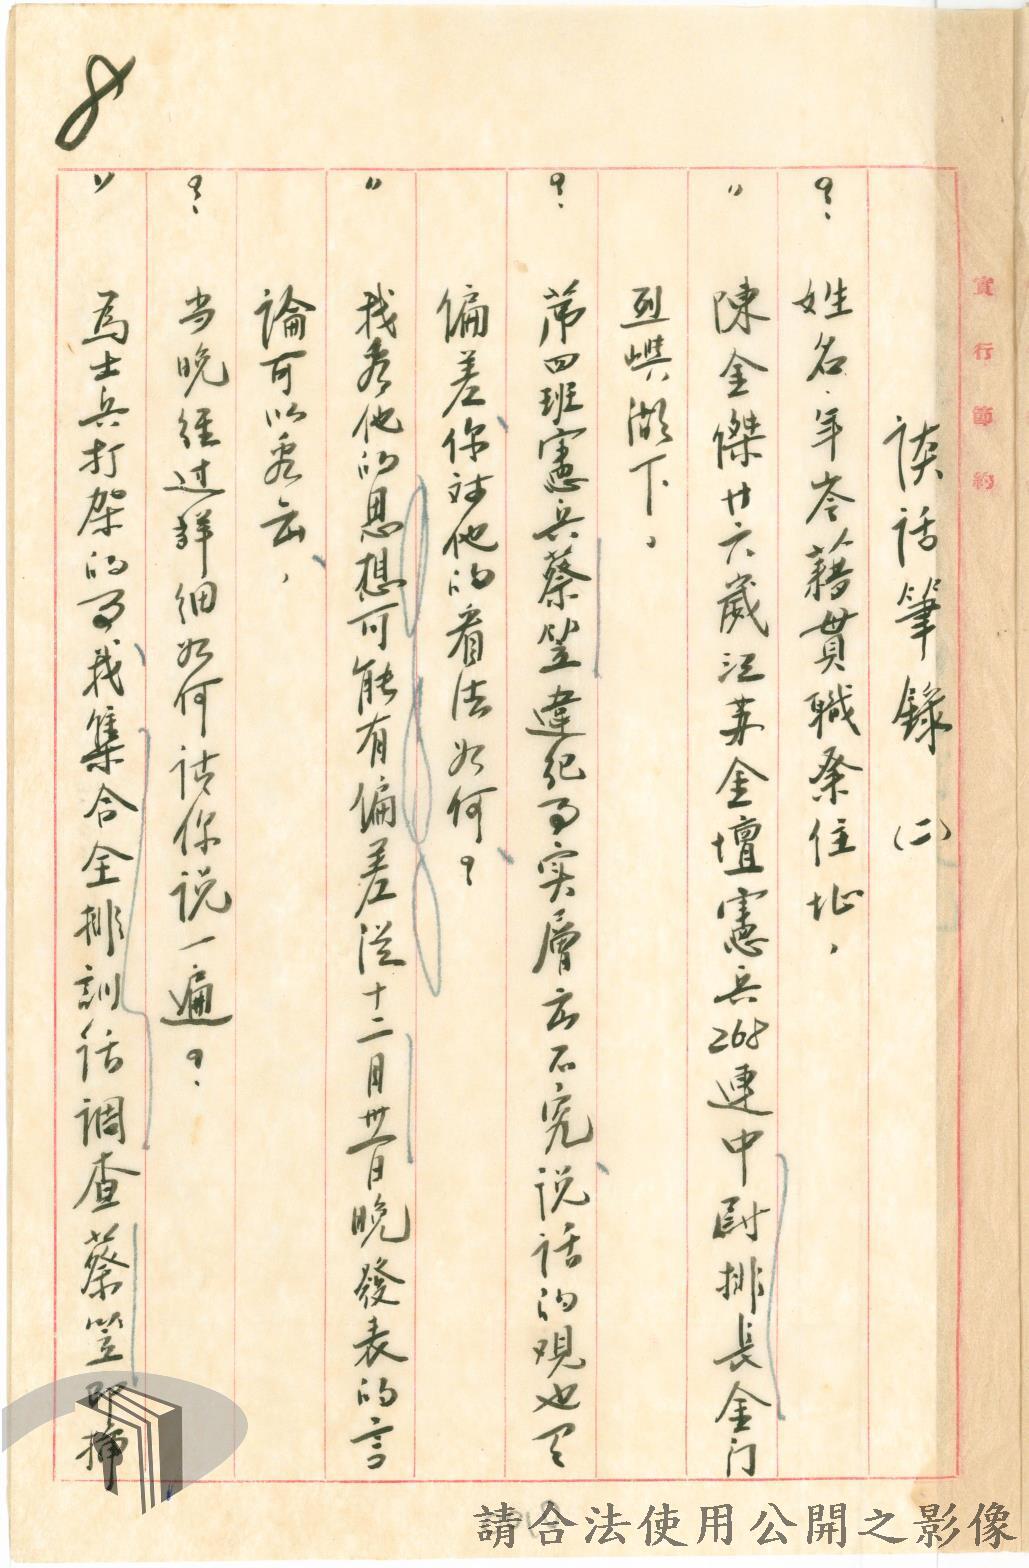 實行節約
談話筆錄(二)
？姓名、年岑藉貫職級住址，
〃陳金傑廿六歲江苏金壇憲兵268連中尉排長金门
烈嶼湖下，
？第四班憲兵蔡笠違纪事实層出不穷说話的观也
偏差你对他的看法如何？
〃我看他的思想可能有偏差從十二月卅一日晚發表的言
論可以看出，
？当晚經过詳細如何請你说一遍？
〃為士兵打架的事我集合全排訓話調查蔡笠即插
8
請合法使用公開之影像